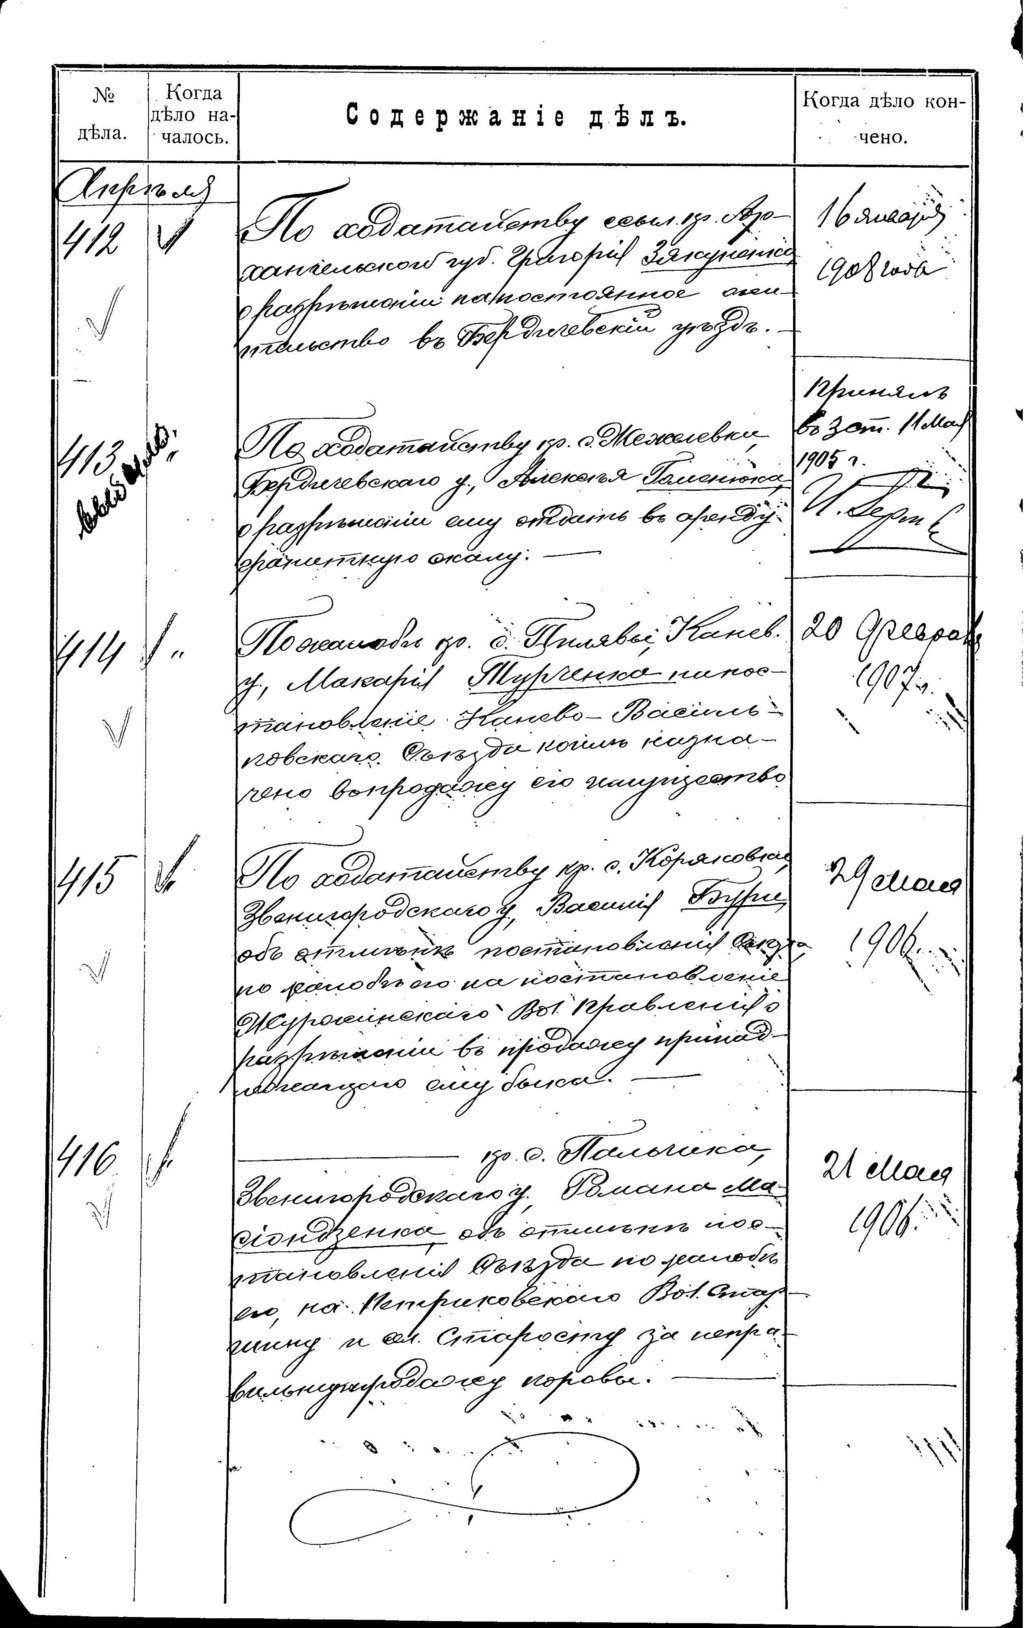 № дѣла.
Когда дѣло на-
чалось.
Содержаніе дѣлъ.
Когда дѣло кон-
чено.
Апрѣля
412
По ходатайству ссыл. кр. Ар-
хангельской губ. Григорія
о разрѣшеніи на постоянное жи-
тельство въ Бердичевскій уѣздъ.
16 января
1908 года
413
По ходатайству кр. с. Межелевки,
Бердичевскаго у., Алексѣя Гаменюка,
о разрѣшеніи ему отдать въ аренду
гранитную скалу.
Принялъ
въ зат. 11 Мая
1905 г.
414
По жалобѣ кр. с. Пилявы, Канев.
у., Макарія Турченка на пос-
тановленіе Канево-Василь-
ковскаго Съѣзда коимъ назна-
чено въ продажу его имущество
20 Февраля
1907 г.
415
По ходатайству кр. с. Коряковки,
Звенигородскаго у., Василія
объ отмѣнѣ постановленія Съѣзда
по жалобѣ его на постановленіе
Вол. Правленія о
разрѣшеніи въ продажу принад-
лежащаго ему быка.
29 Мая
1906.
416
кр. с. Пальчика,
Звенигородскаго у. Романа Ма-
объ отмѣнѣ пос-
тановленія Съѣзда по жалобѣ
его, на Петриковскаго Вол. Стар-
шину и сел. Старосту за непра-
вильную продажу коровы.
21 Мая
1906.